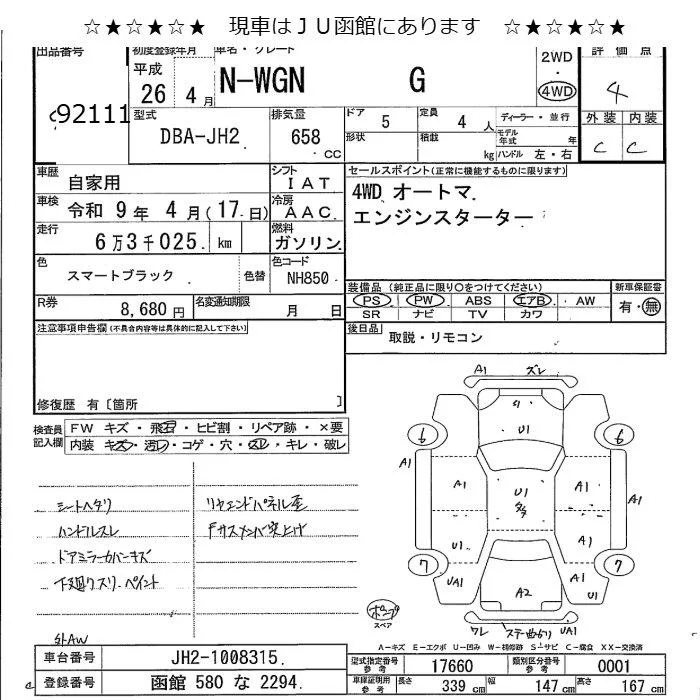 ☆★☆★☆★ 現車はＪＵ函館にあります ☆★☆★☆★
出品番号
92111
初度登録年月
平成
26 4 月
車名・グレード
N-WGN G
2WD
4WD
評価点
4
外装 内装
C C
型式
DBA-JH2
排気量
658 CC
ドア 5
定員 4 人
形状
積載 kg
ディーラー・並行
モデル年式 年
ハンドル 左・右
車歴
自家用
シフト
IAT
車検
令和 9年 4月(17日)
冷房
AAC
走行
6万3千025 km
燃料
ガソリン
色
スマートブラック
色替
色コード
NH850
R券
8,680 円
名変通知期限
月 日
セールスポイント(正常に機能するものに限ります)
4WD オートマ
エンジンスターター
装備品 (純正品に限り○をつけてください)
新車保証書
PS PW ABS エアB AW
有・無
SR ナビ TV カワ
後日品
取説・リモコン
注意事項申告欄(不具合内容等は具体的に記入して下さい)
修復歴 有〔箇所 〕
検査員記入欄
FW キズ・飛石・ヒビ割・リペア跡・×要
内装 キズ・汚レ・コゲ・穴・スレ・キレ・破レ
シートヘタリ
ハンドルスレ
ドアミラーカバーキズ
下廻りスリ、ペイント
外AW
リヤエンドパネル歪
Fサスメンバ突上げ
A1 ズレ
U1
6 6
A1
A1 A1
U1
A1
U1 A1
7 7
UA1 U1
A2
ポンプ
スペア
ワレ ステー曲り UA1
A－キズ E－エクボ U－凹み W－補修跡 S－サビ C－腐食 XX－交換済
車台番号
JH2-1008315
登録番号
函館 580 な 2294
型式指定番号参考
17660
類別区分番号参考
0001
車庫証明用参考
長さ 339 cm
幅 147 cm
高さ 167 cm